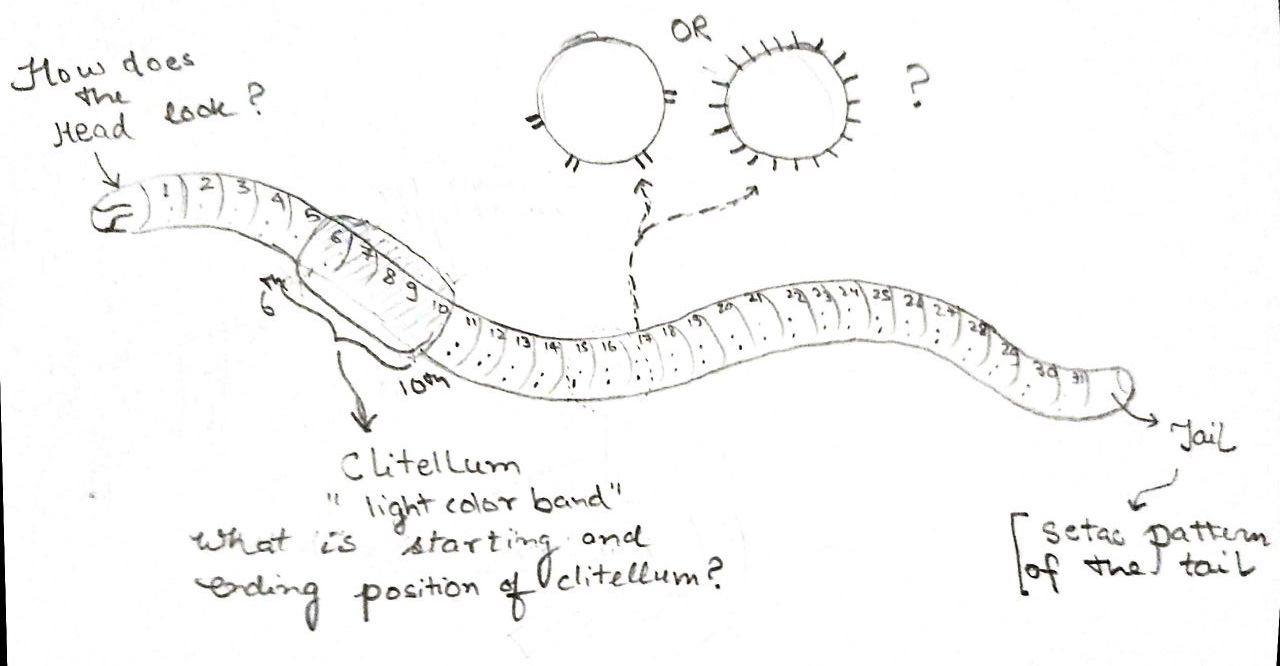 How does
the
Head look?
OR
?
1 2 3 4 5 6 7 8 9 10 11 12 13 14 15 16 17 18 19 20 21 22 23 24 25 26 27 28 29 30 31
6th
10th
Clitellum
"light color band"
What is starting and
ending position of clitellum?
Tail
setae pattern
of the tail